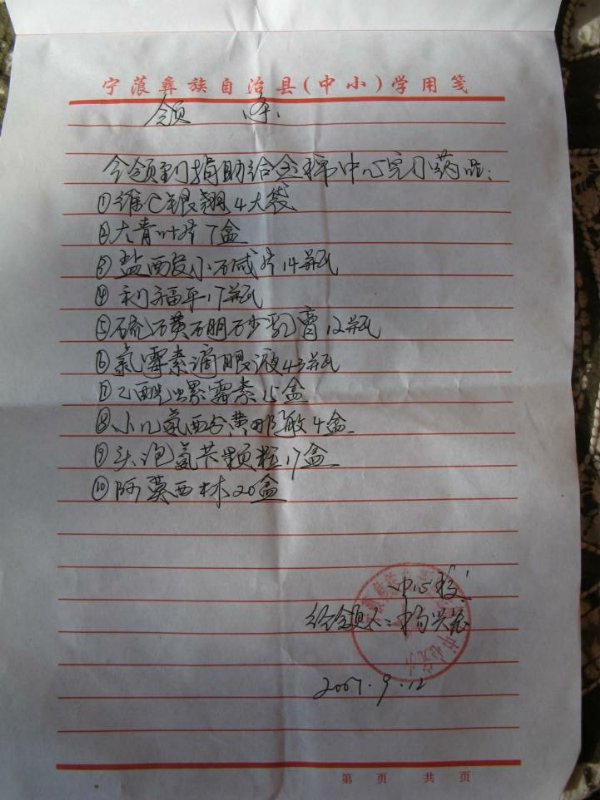 宁蒗彝族自治县(中小)学用笺
领 条
今领到捐助给金棉中心完小药品:
①维C银翘4大袋
②大青叶片7盒
③盐酸小檗碱片14瓶
④利福平17瓶
⑤硫磺硼砂乳膏12瓶
⑥氯霉素滴眼液43瓶
⑦乙酰螺霉素15盒
⑧小儿氨酚黄那敏4盒
⑨头孢氨苄颗粒17盒
⑩阿莫西林20盒
中心校
经领人:杨兴
2007.9.12
第 页 共 页